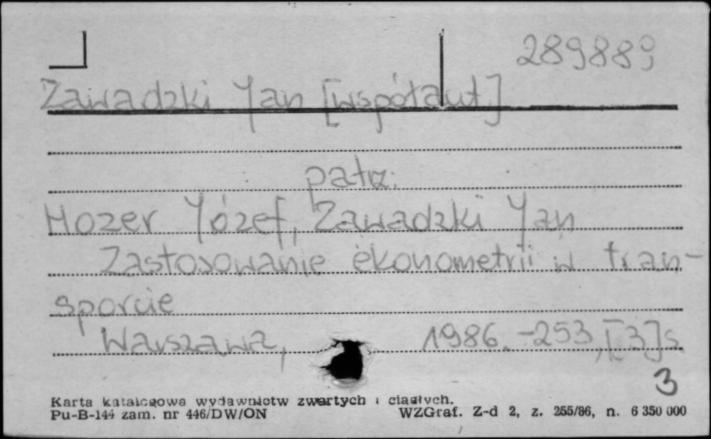 289889
Zawadzki Jan [współaut]
patrz:
Mozer Józef, Zawadzki Jan
Zastosowanie ekonometrii w tran-
sporcie
Warszawa, 1986. - 253, [3] s
3
Karta katalogowa wydawnictw zwartych i ciągłych.
Pu-B-144 zam. nr 446/DW/ON WZGraf. Z-d 2, z. 255/86, n. 6 350 000